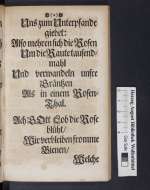 Uns zum Unterpfande
giebet:
Also mehren sich die Rosen
Um die Raute tausend-
mahl
Und verwandeln unsre
Gräntzen
Als in einem Rosen-
Thal.
Ach GOtt Lob die Rose
blüht/
Wir verbleiben fromme
Bienen/
Welche
Herzog August Bibliothek Wolfenbüttel